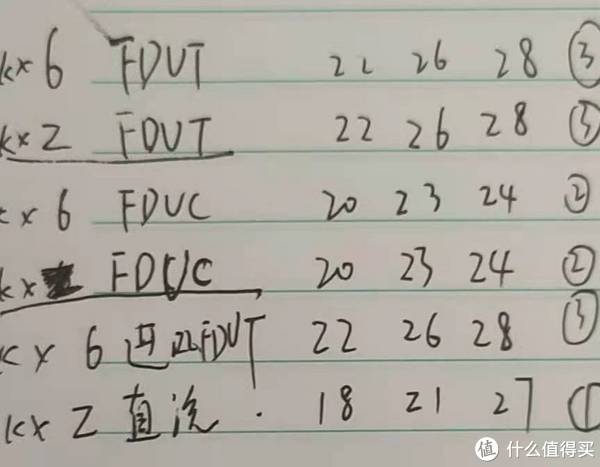 kx 6 FDUT 22 26 28 ③
kx 2 FDUT 22 26 28 ③
kx 6 FDUC 20 23 24 ②
kx FDUC 20 23 24 ②
kx 6 22FDUT 22 26 28 ③
kx 2 直洗. 18 21 27 ①
值 什么值得买